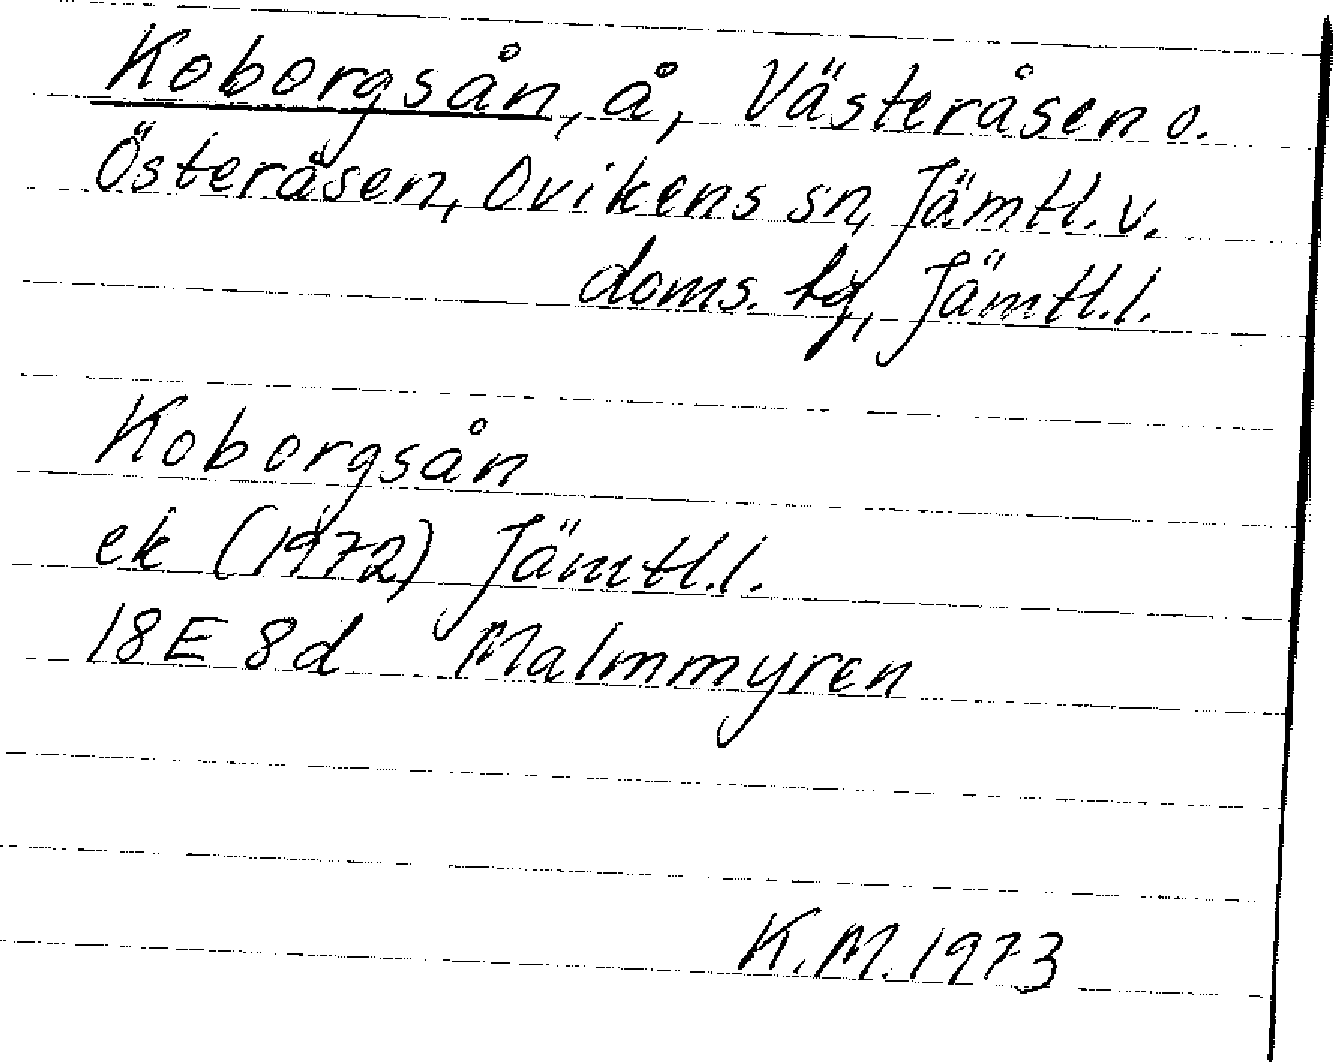 Koborgsån, å, Västeråsen o.
Österåsen, Ovikens sn, Jämtl. v.
doms. tg, Jämtl. l.
Koborgsån
ek (1972) Jämtl. l.
18E 8d Malmmyren
K.M. 1973